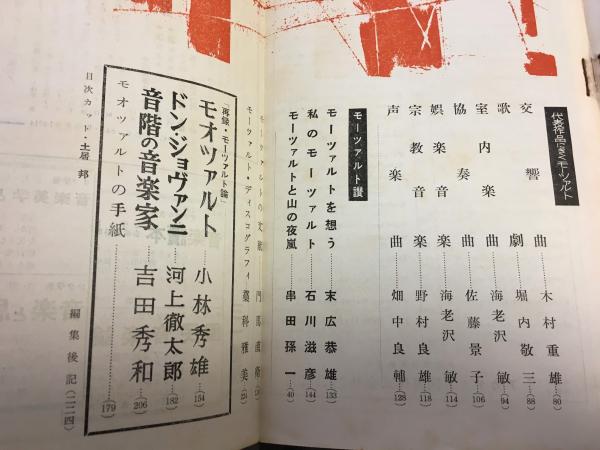 代表作品にきくモーツァルト
交響曲……木村重雄(80)
歌劇……堀内敬三(88)
室内楽曲……海老沢敏(94)
協奏曲……佐藤景子(106)
娯楽音楽……海老沢敏(114)
宗教音楽……野村良雄(118)
声楽曲……畑中良輔(128)
モーツァルト讃
モーツァルトを想う……末広恭雄(133)
私のモーツァルト……石川滋彦(144)
モーツァルトと山の夜嵐……串田孫一(40)
モーツァルトの文献 門馬直衛
モーツァルト・ディスコグラフィ 藁科雅美
「再録・モーツァルト論」
モオツァルト……小林秀雄(154)
ドン・ジョヴァンニ……河上徹太郎(182)
音階の音楽家……吉田秀和(206)
モオツァルトの手紙……(179)
編集後記(二二四)
目次カット・土居 邦